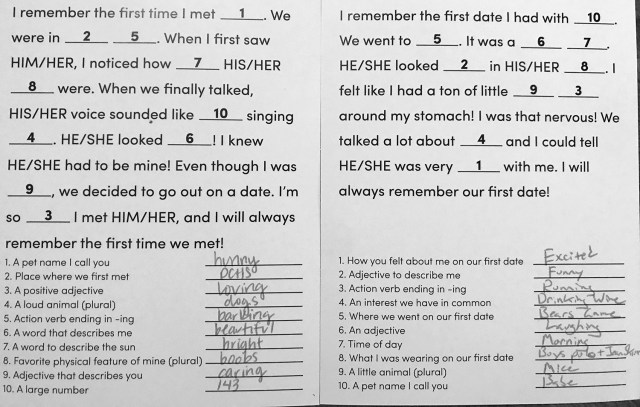 I remember the first time I met 1. We
were in 2 5. When I first saw
HIM/HER, I noticed how 7 HIS/HER
8 were. When we finally talked,
HIS/HER voice sounded like 10 singing
4. HE/SHE looked 6! I knew
HE/SHE had to be mine! Even though I was
9, we decided to go out on a date. I'm
so 3 I met HIM/HER, and I will always
remember the first time we met!
1. A pet name I call you hunny
2. Place where we first met OCHS
3. A positive adjective Loving
4. A loud animal (plural) dogs
5. Action verb ending in -ing barking
6. A word that describes me beautiful
7. A word to describe the sun bright
8. Favorite physical feature of mine (plural) boobs
9. Adjective that describes you caring
10. A large number 143
I remember the first date I had with 10.
We went to 5. It was a 6 7.
HE/SHE looked 2 in HIS/HER 8. I
felt like I had a ton of little 9 3
around my stomach! I was that nervous! We
talked a lot about 4 and I could tell
HE/SHE was very 1 with me. I will
always remember our first date!
1. How you felt about me on our first date Excited
2. Adjective to describe me Funny
3. Action verb ending in -ing Running
4. An interest we have in common Drinking Wine
5. Where we went on our first date Bears Game
6. An adjective Laughing
7. Time of day Morning
8. What I was wearing on our first date Boys polo +
9. A little animal (plural) Mice
10. A pet name I call you Babe